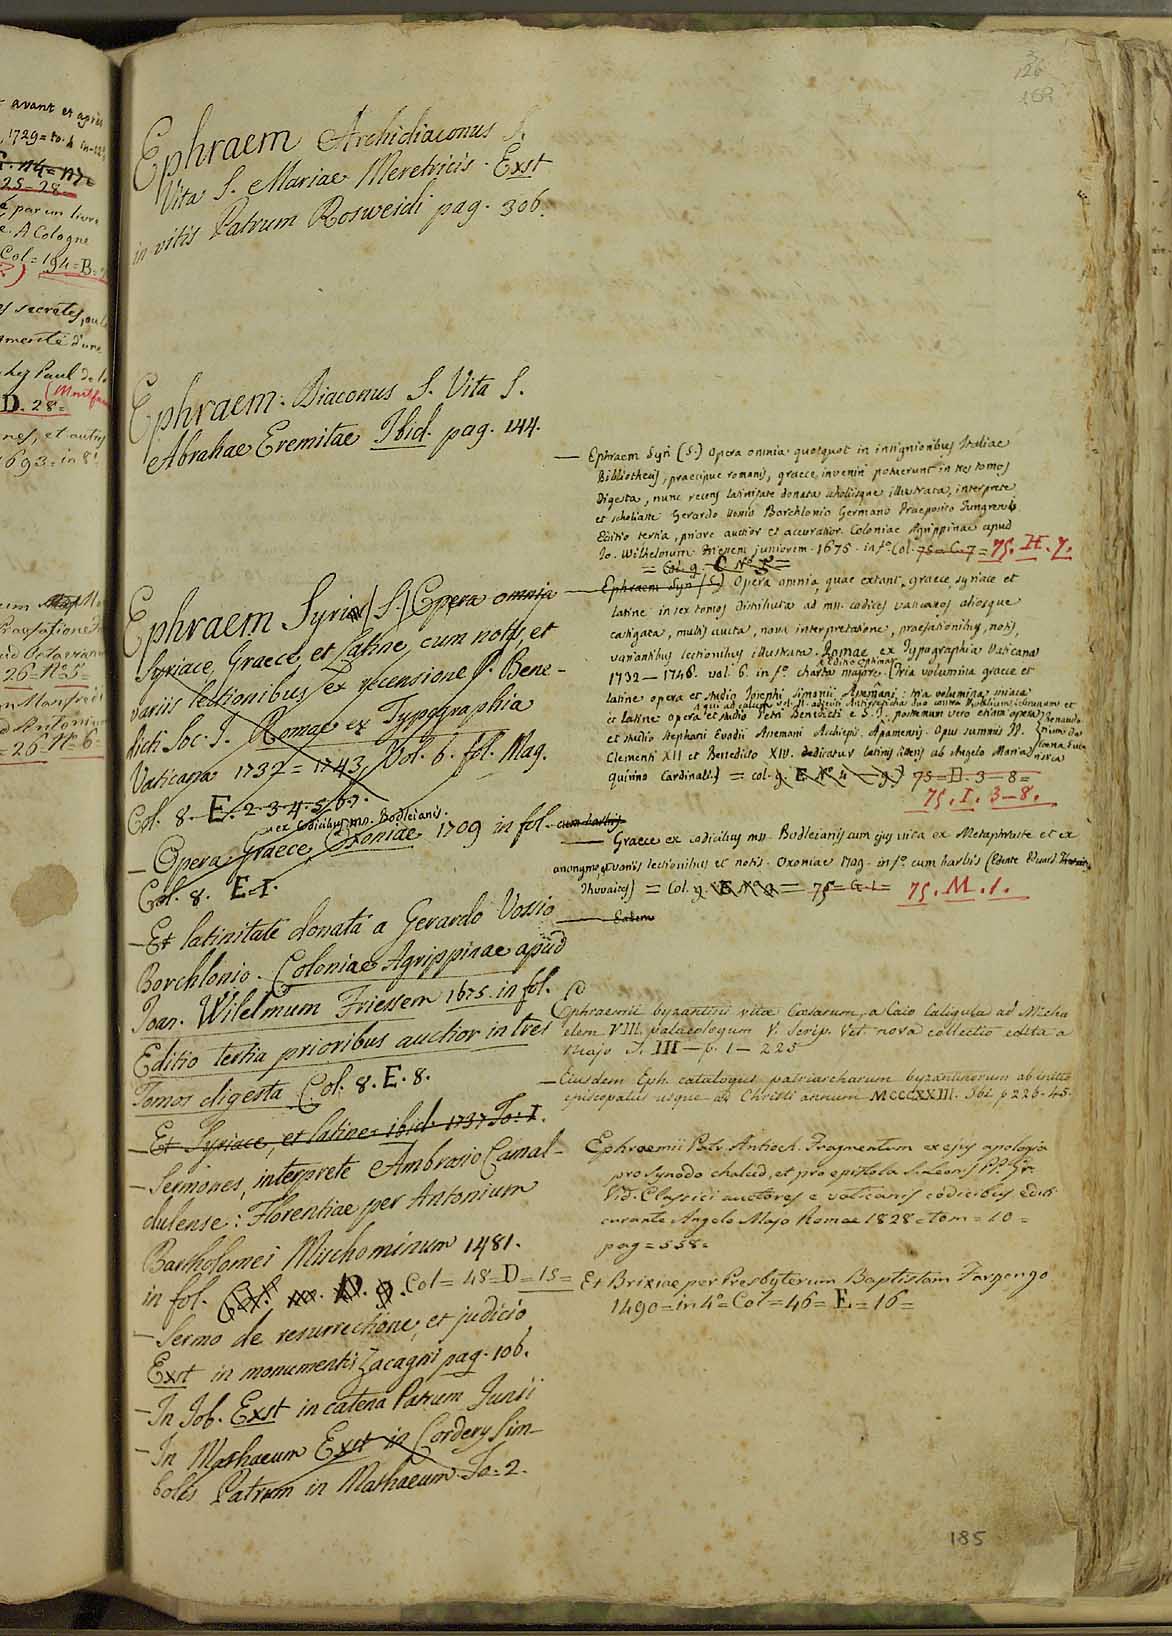 3
126
162
Ephraem Archidiaconus S.
Vita S. Mariae Meretricis. Exst
in vitis Patrum Rosweidi pag. 306.
Ephraem. Diaconus S. Vita S.
Abrahae Eremitae Ibid. pag. 144.
Ephraem Syri (S.) Opera omnia
Syriace, Graece, et Latine, cum notis, et
variis lectionibus ex recensione P. Bene-
dicti Soc. J. Romae ex Typographia
Vaticana 1737 = 1743, Vol. 6. fol. Mag.
Col. 8. E. 2-3-4-5-6-7.
ex codicibus mss. Bodleianis.
— Opera Graece Oxoniae 1709 in fol.
Col. 8. E-I.
— Et latinitate donata a Gerardo Vossio
Borchlonio. Coloniae Agrippinae apud
Joan. Wilelmum Friessem 1675. in fol.
Editio tertia prioribus auctior in tres
Tomos digesta Col. 8. E. 8.
— Et Syriace, et latine ibid. 1737 To: I.
— Sermones, interprete Ambrosio Camal-
dulense: Florentiae per Antonium
Bartholomei Mischominum 1481.
in fol. Col = 48 = D = 15 =
— Sermo de resurrectione, et judicio
Exst in monumentis Zacagni pag. 106.
— In Job. Exst in catena Patrum Junii
— In Mathaeum Exst in Cordery Sim-
bolis Patrum in Mathaeum To: 2.
— Ephraem Syri (S.) Opera omnia quotquot in insignioribus Italiae
Bibliothecis, praecipue romanis, graece, inveniri potuerunt in tres tomos
Digesta, nunc recens latinitate donata scholiisque illustrata, interprete
et scholiaste Gerardo Vossio Borchlonio Germano Praeposito Tungrensi.
Editio tertia, priore auctior et accuratior. Coloniae Agrippinae apud
Jo. Wilhelmum Friessem juniorem. 1675. in fº. Col. 75 = C. 7 = 75. H. 7.
= Col. 9. Nº 5 =
— Ephraem Syri (S.) Opera omnia, quae extant, graece, syriace et
latine in sex tomos distributa ad mss. codices vaticanos aliosque
castigata, multis aucta, nova interpretatione, praefationibus, notis,
variantibus lectionibus illustrata. Romae ex Typographia Vaticana
1732 — 1746. vol. 6. in fº. charta majore. (Tria volumina graece et
latine opera et studio Josephi Simonii Assemani: tria volumina syriace
et latine opera et studio Petri Benedicti e S. J. postremum vero etiam opera
et studio Stephani Evodii Assemani Archiepi. Apamensis. Opus summis PP.
Clementi XII et Benedicto XIV. dedicatur latinis litteris ab Angelo Maria
Quirino Cardinali.) = col. 9. E Nº 4 — 9 75 = D. 3 — 8 =
75. I. 3 — 8.
cum harbis
— Graece ex codicibus mss. Bodleianis cum ejus vita ex Metaphraste et ex
anonymo, et variis lectionibus et notis. Oxoniae 1709. in fº. cum harbis (Edente Eduard.
Thwaites) = Col. 9. E Nº 9 = 75 = G. 1 = 75. M. 1.
— Eadem
Ephraemii byzantini vitae Caesarum, a Caio Caligula ad Micha
elem VIII. palaeologum V. Scrip. Vet. nova collectio edita a
Majo T. III — p. 1 — 225
— Eiusdem Eph. catalogus patriarcharum byzantinorum ab initio
episcopatus usque ad Christi annum MCCCXXIII. Ibi p 226-45.
Ephraemii Patr. Antioch. Fragmentum ex ejus apologia
pro Synodo chalced, et pro epistola S. Leonis PP. Gr.
Vid. Classici auctores e vaticanis codicibus editi
curante Angelo Majo Romae 1828 = tom = 10 =
pag = 558 =
Et Brixiae per Presbyterum Baptistam Farfengo
1490 = in 4º = Col = 46 = E = 16 =
185